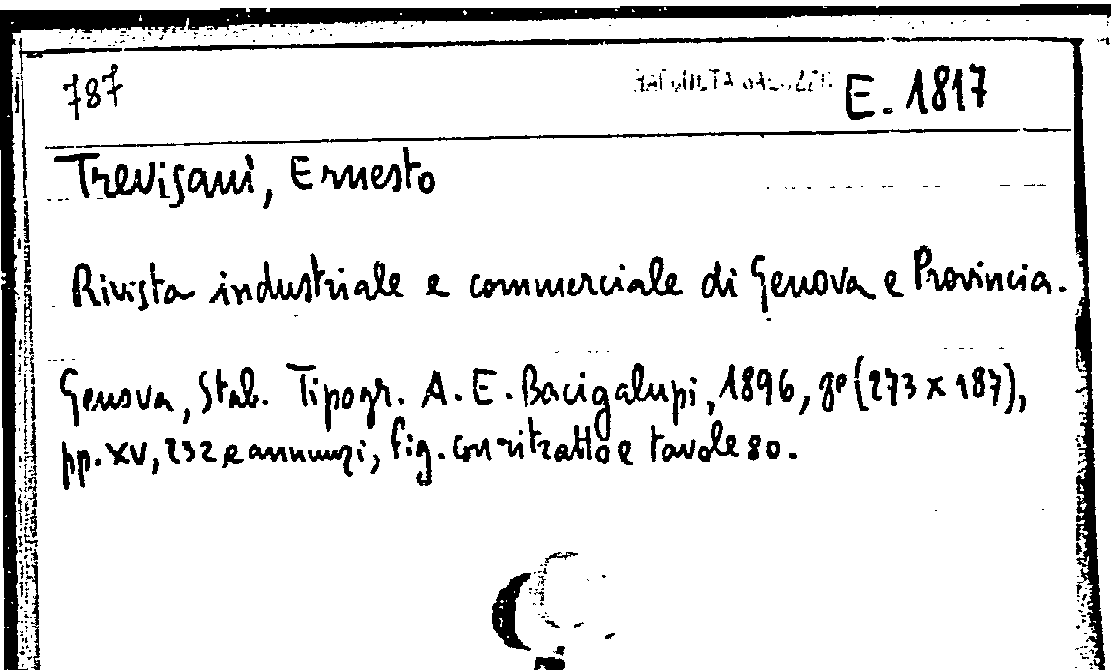 787 E. 1817
Trevisani, Ernesto
Rivista industriale e commerciale di Genova e Provincia.
Genova, Stab. Tipogr. A. E. Bacigalupi, 1896, 8º (273 x 187),
pp. XV, 232 e annunzi, fig. con ritratto e tavole 80.